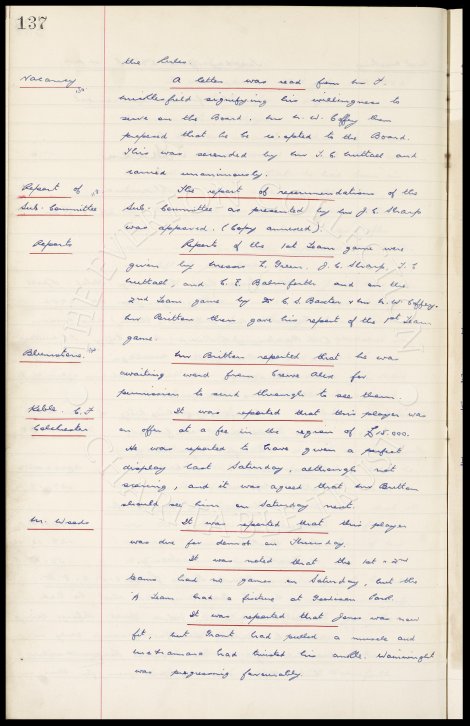 137
the Rules.
Vacancy
A letter was read from Mr F.
Micklesfield signifying his willingness to
serve on the Board. Mr N. W. Coffey then
proposed that he be co-opted to the Board.
This was seconded by Mr T. C. Nuttall and
carried unanimously.
Report of
Sub-Committee
This report of recommendations of the
Sub-Committee as presented by Mr J. C. Sharp
was approved. (Copy annexed).
Reports
Reports of the 1st Team game were
given by Messrs F. Green. J. C. Sharp, T. C
Nuttall, and C. E. Balmforth and on the
2nd Team game by Dr C. S. Baxter & Mr N. W. Coffey.
Mr Britton then gave his report of the 1st Team
game.
Blunstone.
Mr Britton reported that he was
awaiting word from Crewe Alex for
permission to send through to see them.
Keble. C. F
Colchester
It was reported that this player was
on offer at a fee in the region of £15.000.
He was reported to have given a perfect
display last Saturday, although not
scoring, and it was agreed that Mr Britton
should see him on Saturday next.
M. Woods
It was reported that this player
was due for demob on Thursday.
It was noted that the 1st & 2nd
teams had no games on Saturday, but the
A Team had a fixture at Goodison Park.
It was reported that Jones was now
fit, but Grant had pulled a muscle and
McNamara had twisted his ankle. Wainwright
was progressing favourably.